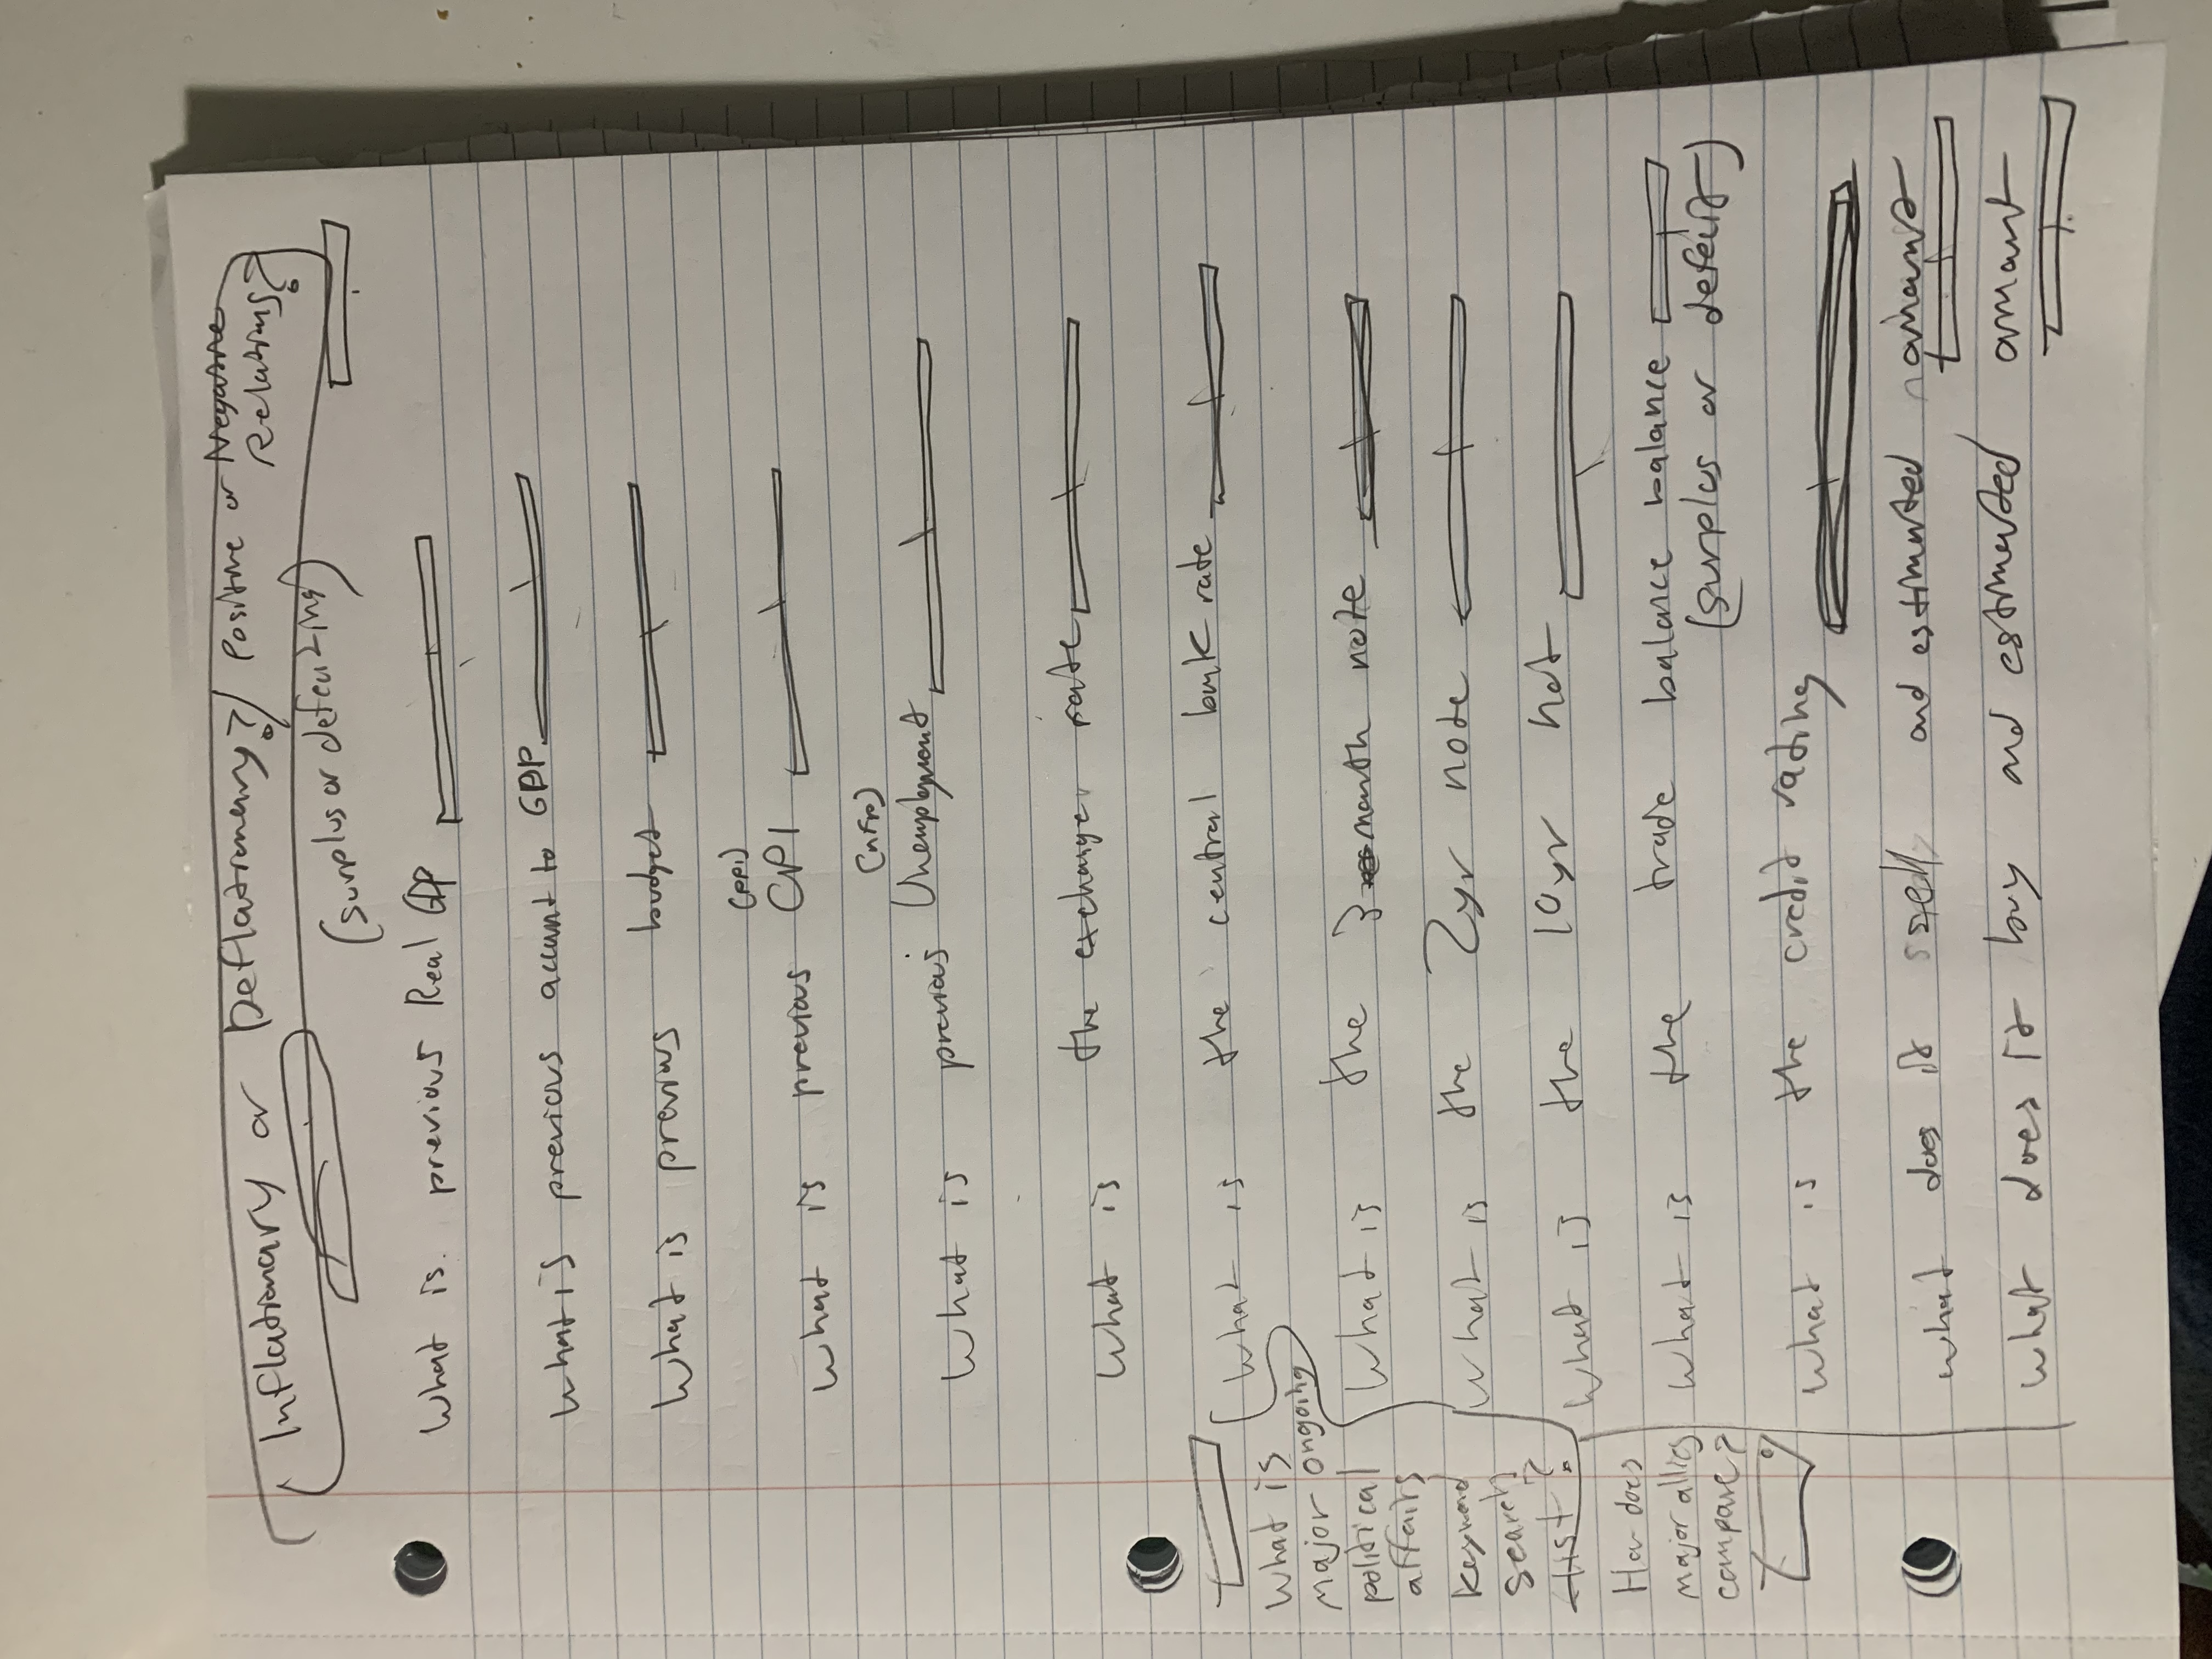 Inflationary or Deflationary? / Positive or Negative
Relations?
(surplus or deficiting)
What is previous Real GDP
What is previous account to GDP
What is previous budget
(PPI)
What is previous CPI
(NFP)
What is previous Unemployment
What is the exchange rate
What is the central bank rate
What is the 3 month note
What is the 2yr note
What is the 10yr not
What is the trade balance balance balance
(surplus or defeist)
What is the credit rating
What does it sell and estimated amount
What does it buy and estimated amount
What is
major ongoing
political
affairs
keyword
search?
List?
How does
major allies
compare?